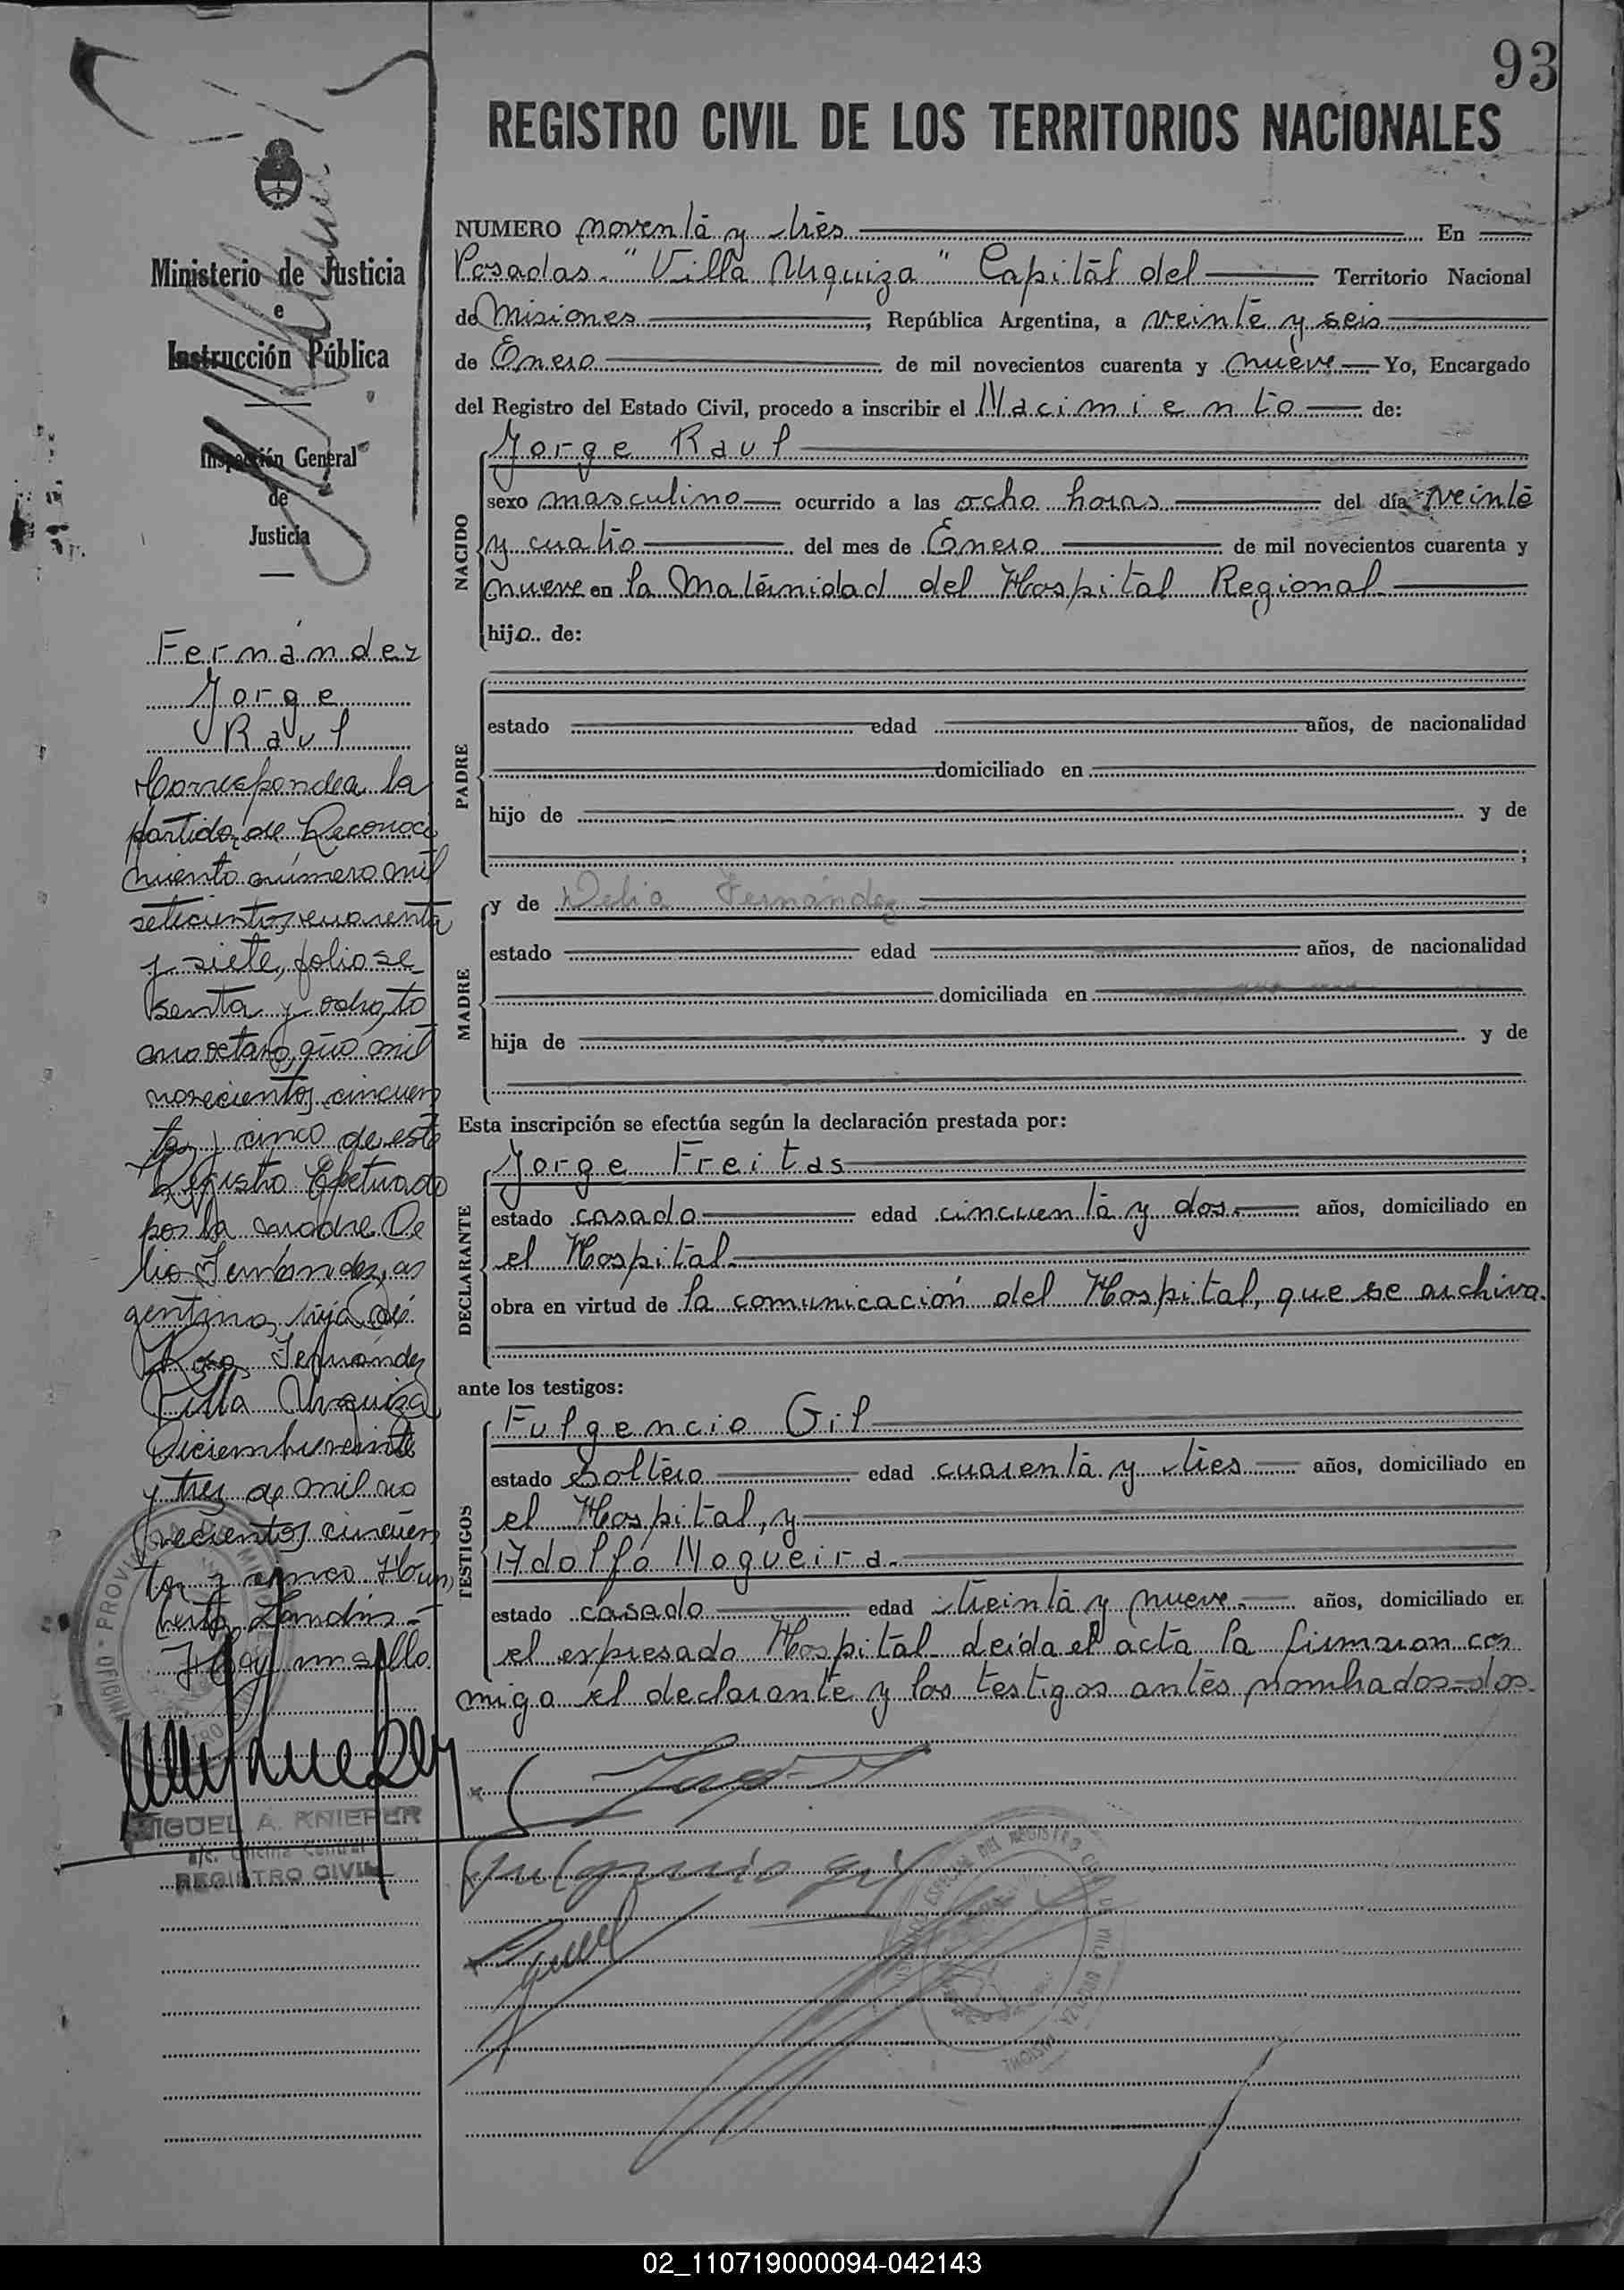 93
REGISTRO CIVIL DE LOS TERRITORIOS NACIONALES
Ministerio de Justicia
e
Instrucción Pública
Inspección General
de
Justicia
Fernández
Jorge
Raul
Corresponde a la
partida de Reconoci
miento número mil
setecientos cuarenta
y siete, folio se_
senta y ocho, to
mo octavo, año mil
novecientos cincuen
ta y cinco de este
Registro Efectuado
por la madre De
lia Fernández, ar
gentina, hija de
Rosa Fernández
Villa Urquiza
Diciembre veinte
y tres de mil no
vecientos cincuen
ta y cinco Hum
berto
Hay un sello
MIGUEL A. KNIEPER
a/c. Oficina Central
REGISTRO CIVIL
NUMERO noventa y tres En
Posadas "Villa Urquiza" Capital del Territorio Nacional
de Misiones, República Argentina, a veinte y seis
de Enero de mil novecientos cuarenta y nueve Yo, Encargado
del Registro del Estado Civil, procedo a inscribir el Nacimiento de:
NACIDO
Jorge Raul
sexo masculino ocurrido a las ocho horas del día veinte
y cuatro del mes de Enero de mil novecientos cuarenta y
nueve en la Maternidad del Hospital Regional
hijo de:
PADRE
estado edad años, de nacionalidad
domiciliado en
hijo de y de
;
MADRE
y de Delia Fernández
estado edad años, de nacionalidad
domiciliada en
hija de y de
Esta inscripción se efectúa según la declaración prestada por:
DECLARANTE
Jorge Freitas
estado casado edad cincuenta y dos años, domiciliado en
el Hospital
obra en virtud de la comunicación del Hospital, que se archiva.
ante los testigos:
TESTIGOS
Fulgencio Gil
estado soltero edad cuarenta y tres años, domiciliado en
el Hospital, y
Adolfo Nogueira
estado casado edad treinta y nueve años, domiciliado en
el expresado Hospital leída el acta la firmaron con
migo el declarante y los testigos antes nombrados
02_110719000094-042143